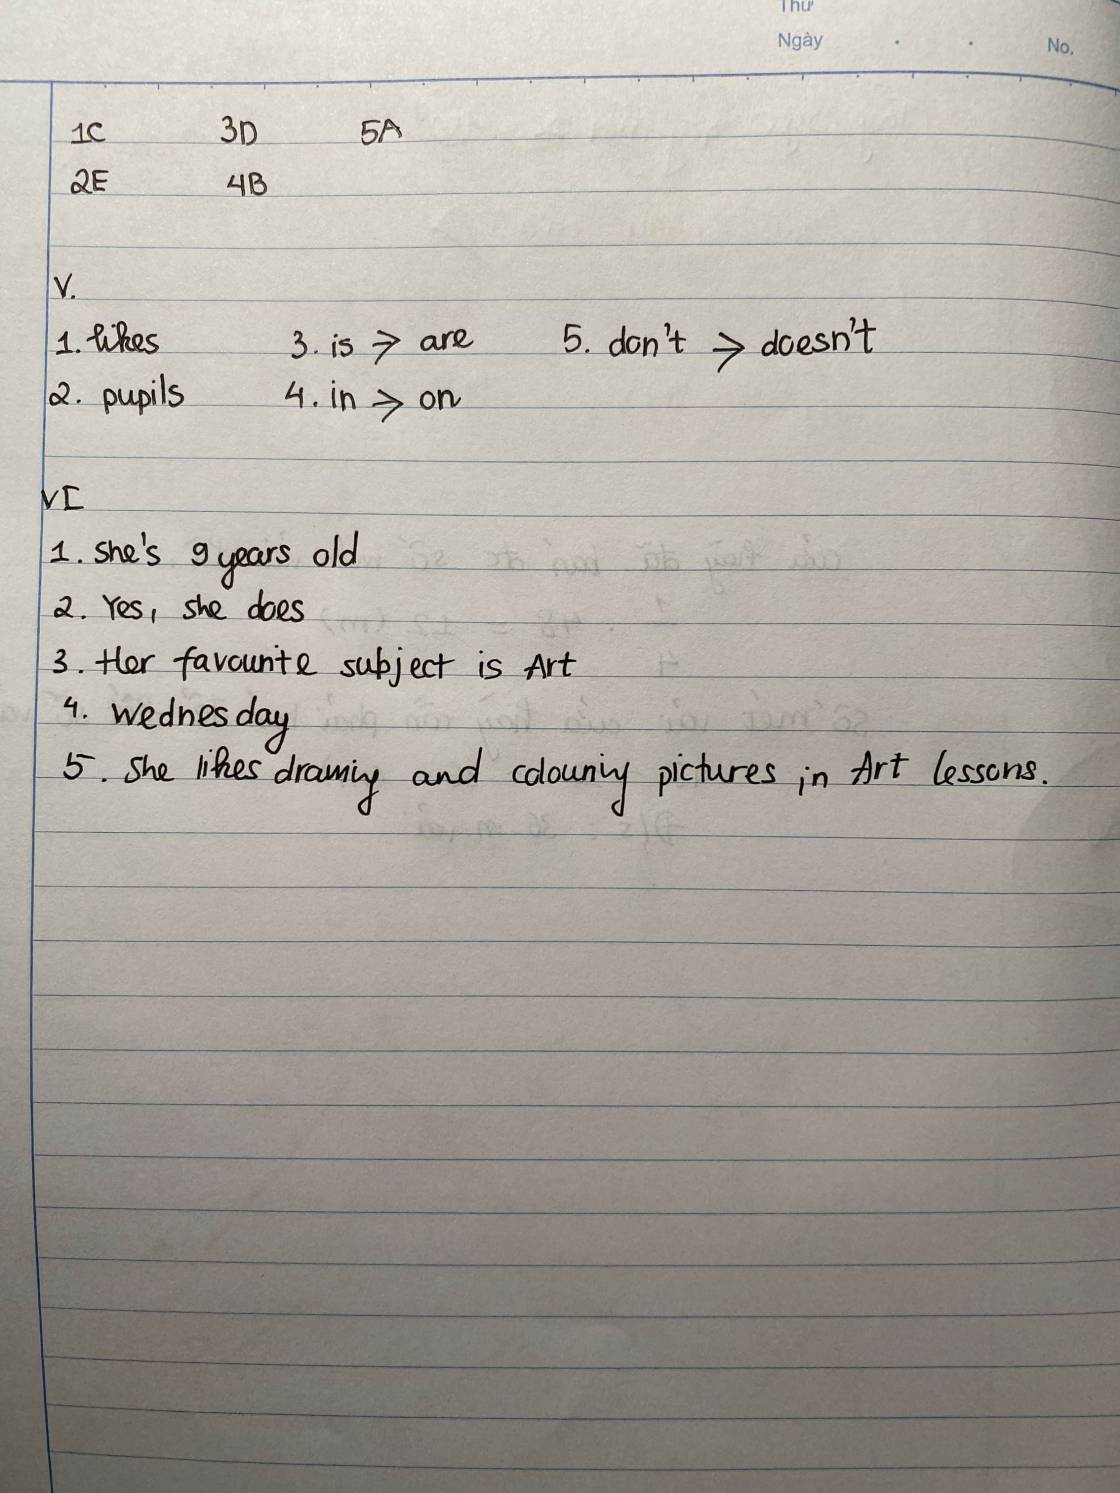 Thứ
Ngày . . No.
1C 3D 5A
2E 4B
V.
1. likes 3. is → are 5. don't → doesn't
2. pupils 4. in → on
VI
1. She's 9 years old
2. Yes, she does
3. Her favourite subject is Art
4. Wednesday
5. She likes drawing and colouring pictures in Art lessons.